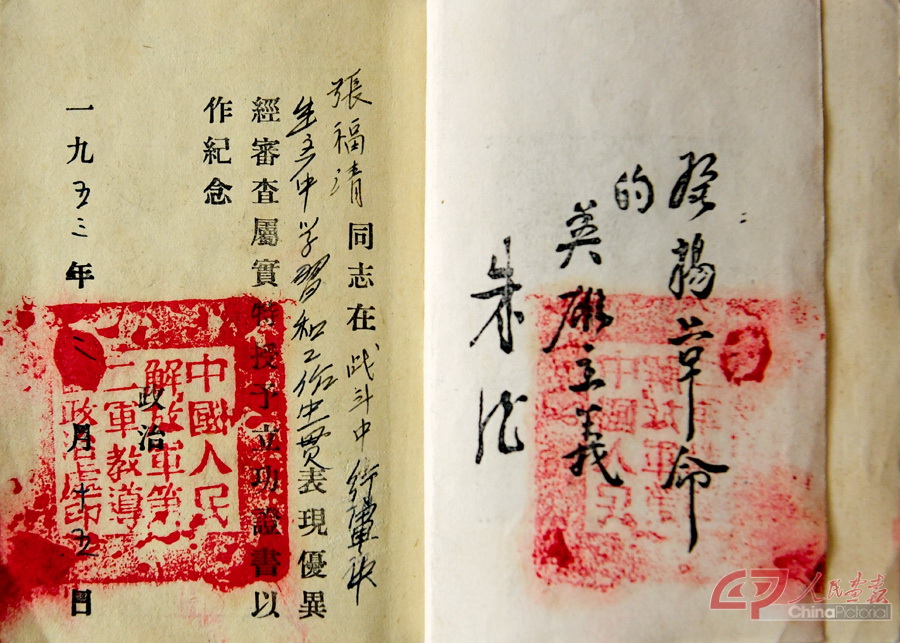 發揚革命
的
英雄主義
朱德
張福清同志在战斗中行軍中
生产中学習和工作中一贯表現優異
經審查屬實特授予立功證書以
作紀念
政治
一九五三年二月十五日
中國人民
解放軍第
二軍教導
政治處印
人民画报
ChinaPictorial